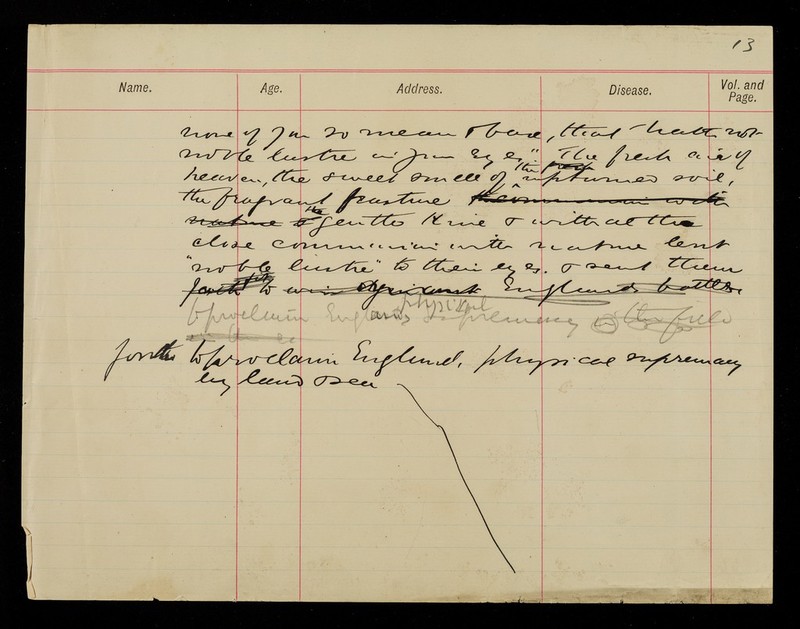 13
Name. Age. Address. Disease. Vol. and Page.
none of you so mean & base, that hath not
noble lustre in your eyes." The fresh air of
heaven, the sweet smell of the upturned soil,
the fragrant pasture the communion with
nature & the gentle Kine & withal the
close communion with nature lent
"noble lustre" to their eyes. & sent them
forth to win England's battles
to proclaim England's physical supremacy
forth to proclaim England's physical supremacy
by land & sea